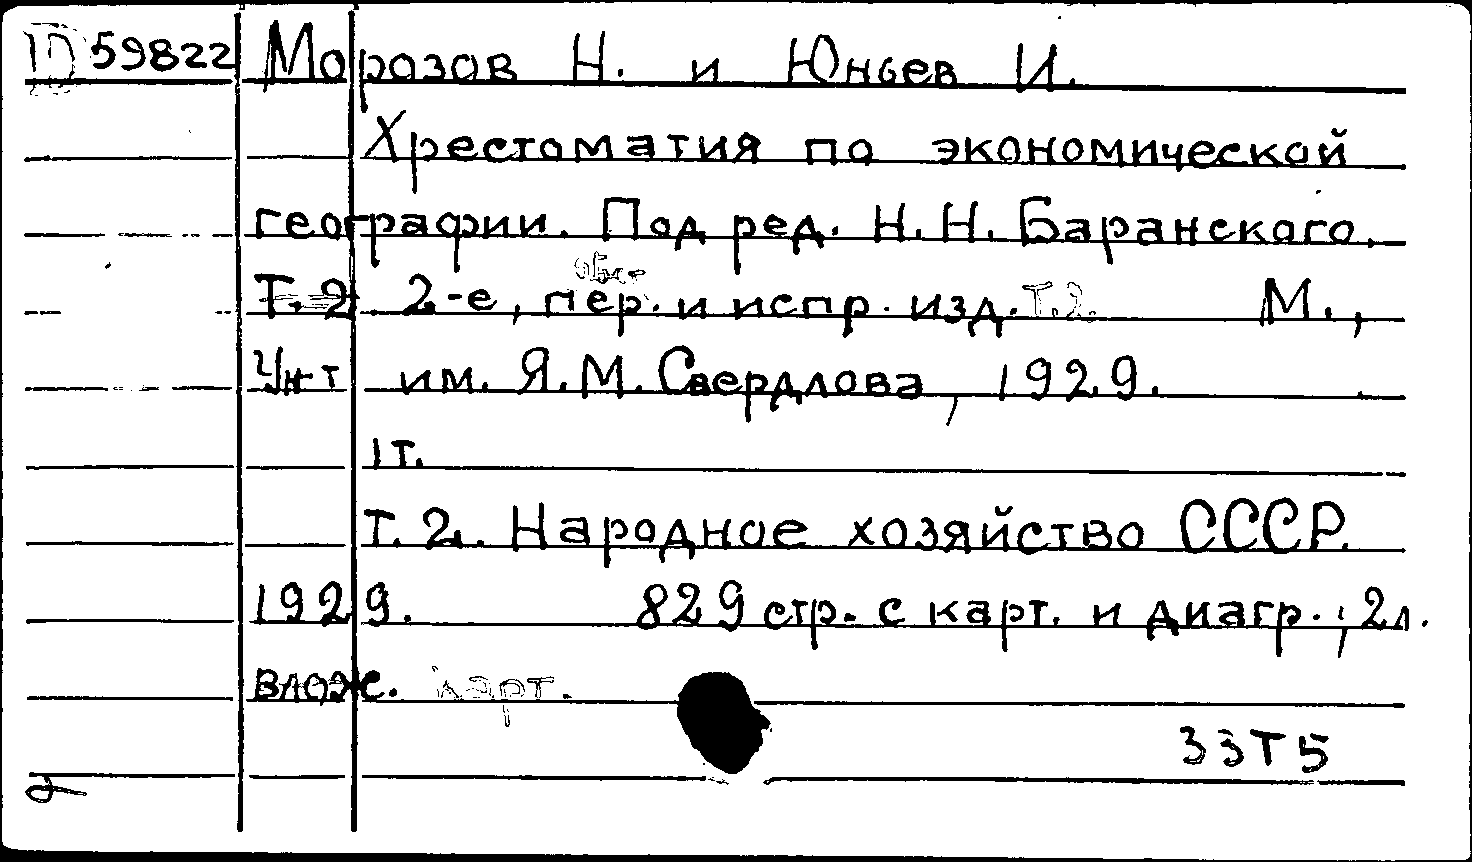 59822 Морозов Н. и Юньев И.
Хрестоматия по экономической
географии. Под ред. Н.Н. Баранского.
Т.2. 2-е, пер. и испр. изд. Т.2. М.,
Ун-т им. Я.М. Свердлова, 1929.
1 т.
Т. 2. Народное хозяйство СССР.
1929. 829 стр. с карт. и диагр.; 2 л.
влож. карт.
33Т5